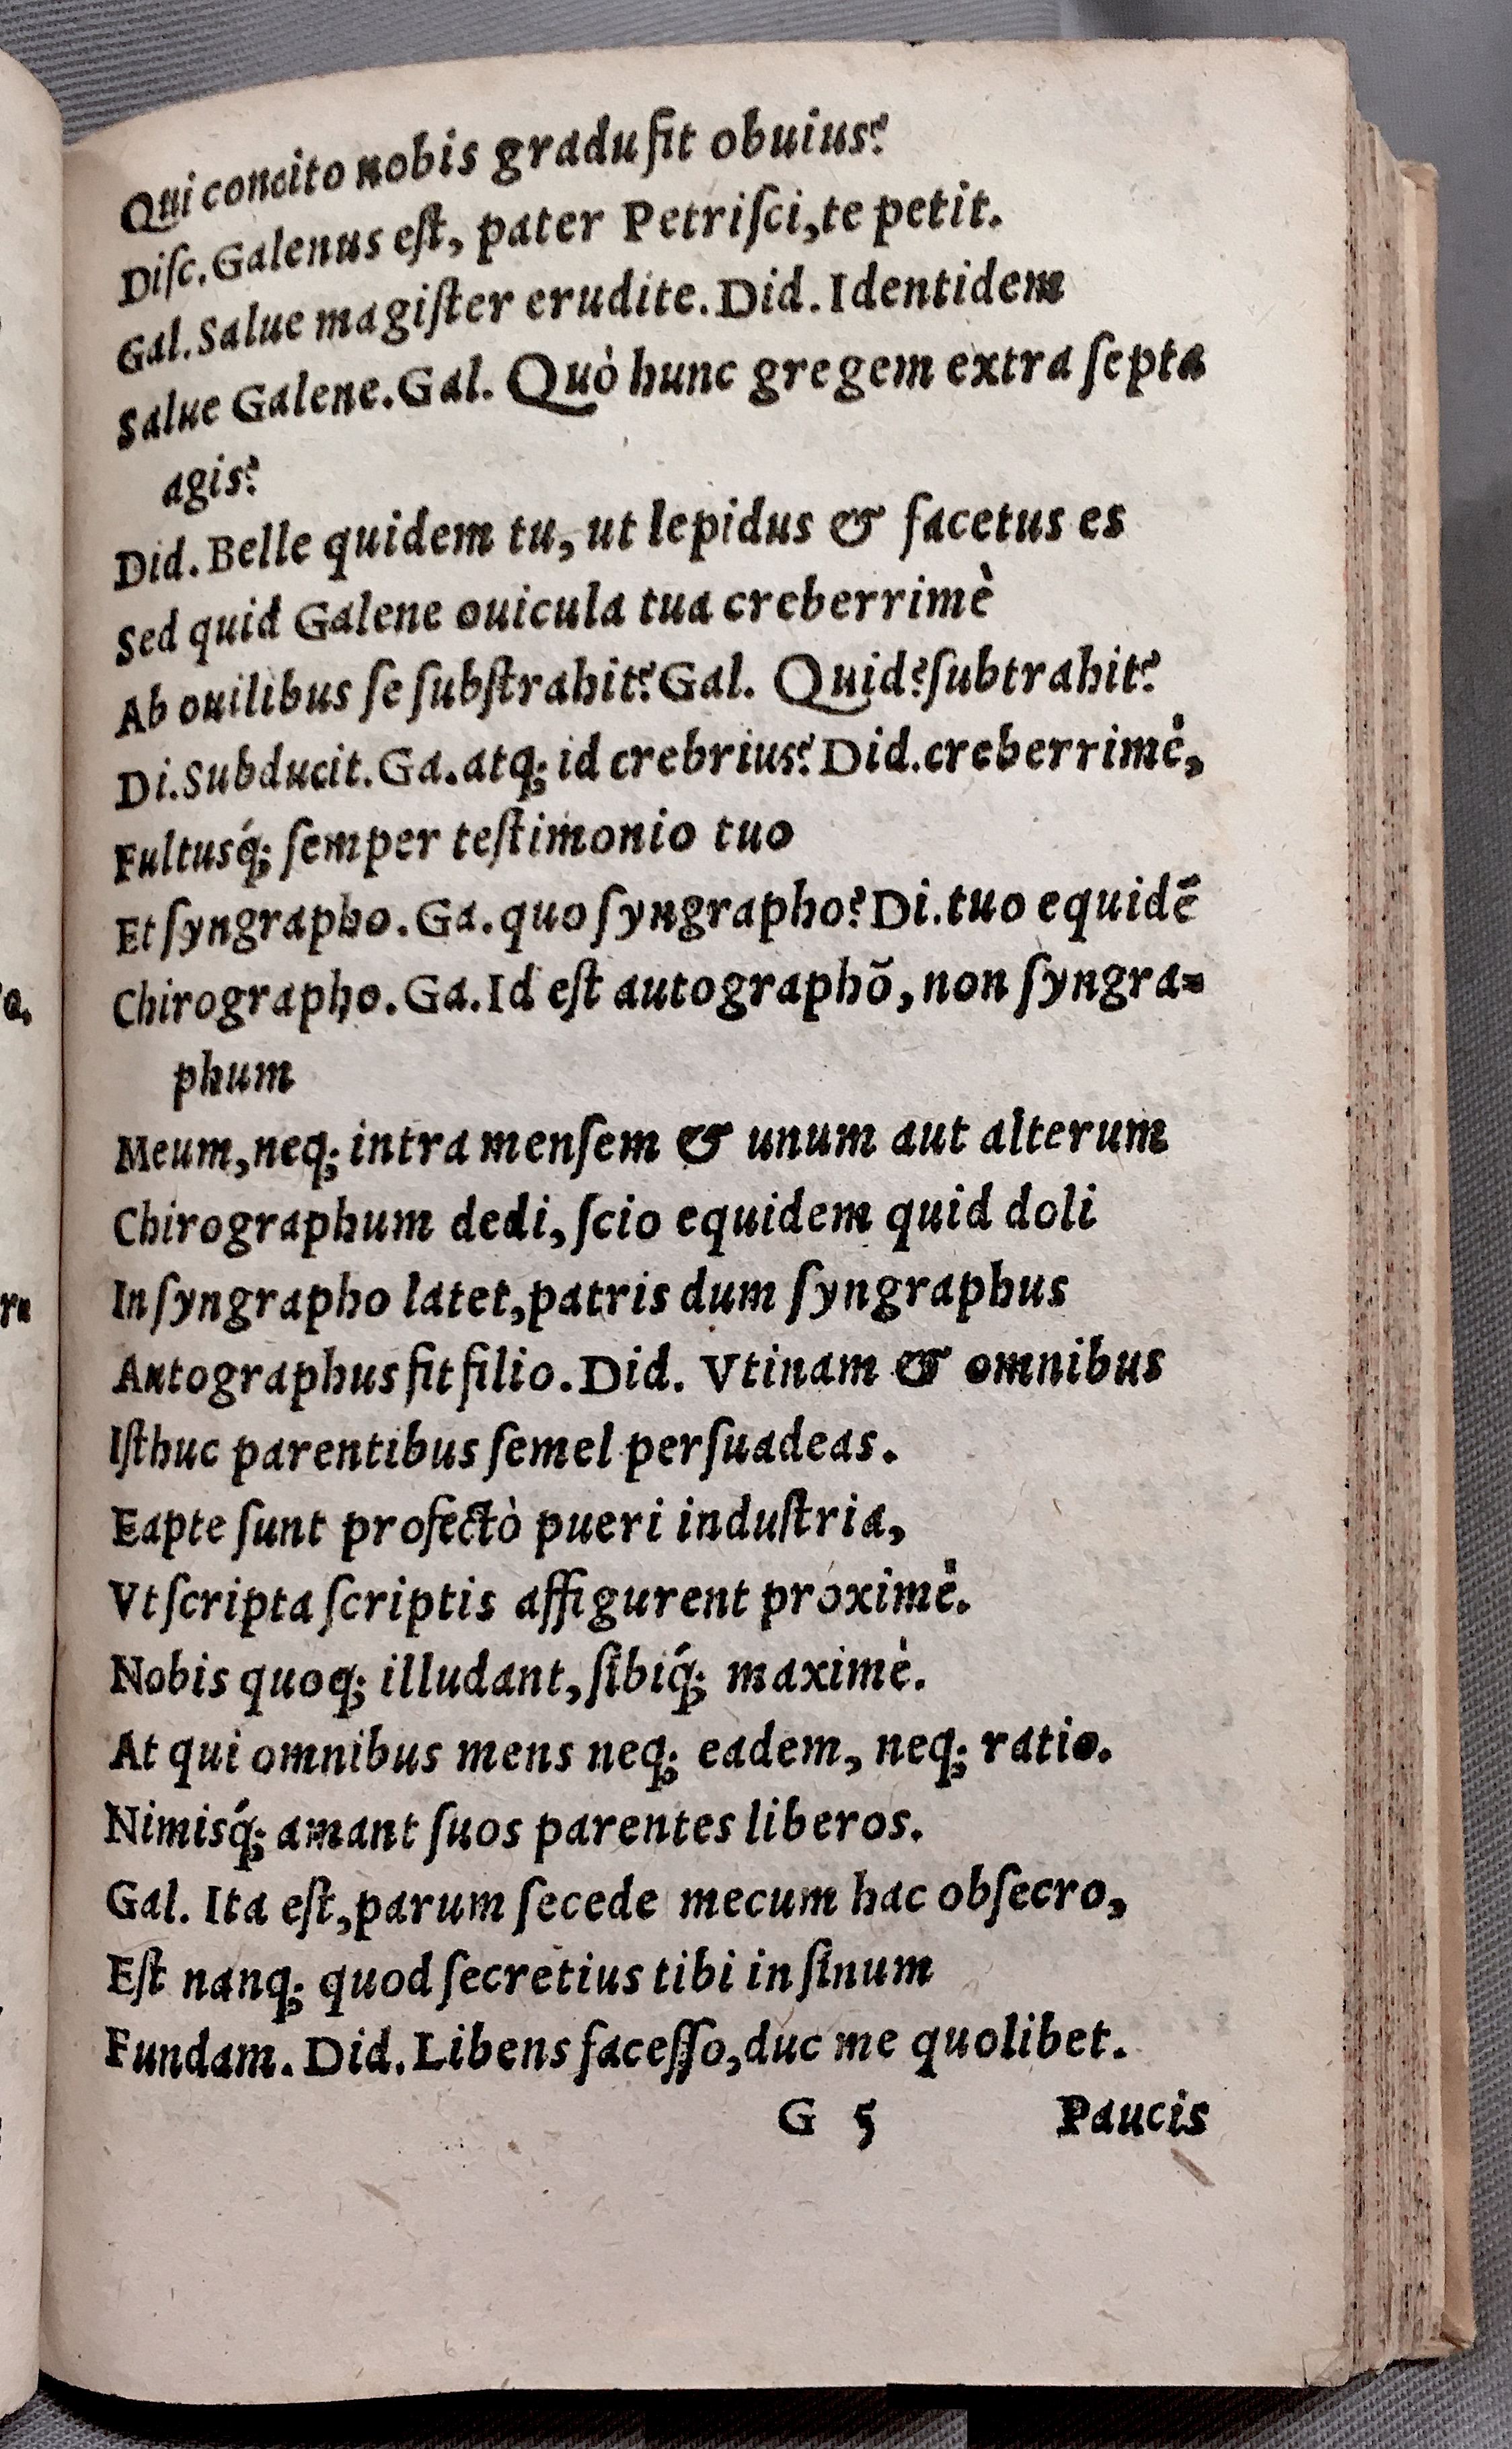 Qui concito nobis gradu fit obuius?
Diſc. Galenus eſt, pater Petriſci, te petit.
Gal. Salue magiſter erudite. Did. Identidem
Salue Galene. Gal. Quò hunc gregem extra ſepta
agis?
Did. Belle quidem tu, ut lepidus & facetus es
Sed quid Galene ouicula tua creberrimè
Ab ouilibus ſe ſubſtrahit? Gal. Quid? ſubtrahit?
Di. Subducit. Ga. atq; id crebrius? Did. creberrimè,
Fultusq́; ſemper teſtimonio tuo
Et ſyngrapho. Ga. quo ſyngrapho? Di. tuo equidē
Chirographo. Ga. Id eſt autographō, non ſyngra-
phum
Meum, neq; intra menſem & unum aut alterum
Chirographum dedi, ſcio equidem quid doli
In ſyngrapho latet, patris dum ſyngraphus
Autographus fit filio. Did. Vtinam & omnibus
Iſthuc parentibus ſemel perſuadeas.
Eapte ſunt profectò pueri induſtria,
Vt ſcripta ſcriptis affigurent proximè.
Nobis quoq; illudant, ſibiq́; maximè.
At qui omnibus mens neq; eadem, neq; ratio.
Nimisq́; amant ſuos parentes liberos.
Gal. Ita eſt, parum ſecede mecum hac obſecro,
Eſt nanq; quod ſecretius tibi in ſinum
Fundam. Did. Libens faceſſo, duc me quolibet.
G 5 Paucis